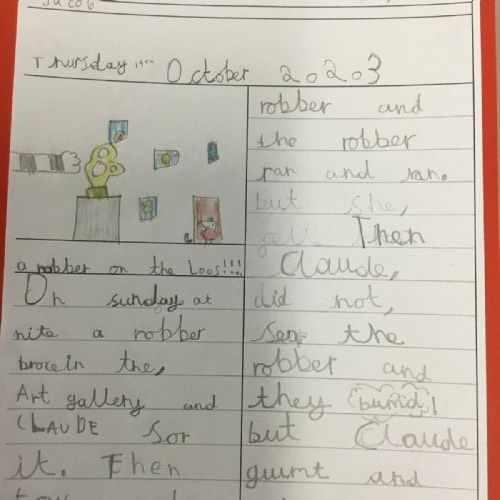 Jacob
Thursday October 2023
a robber on the Loos!!!
On sunday at
nite a robber
broceln the,
Art gallery and
CLAUDE Sor
it. Then
robber and
the robber
ran and ran.
but she,
Then
Claude,
did not,
the
robber and
they
but Claude
and